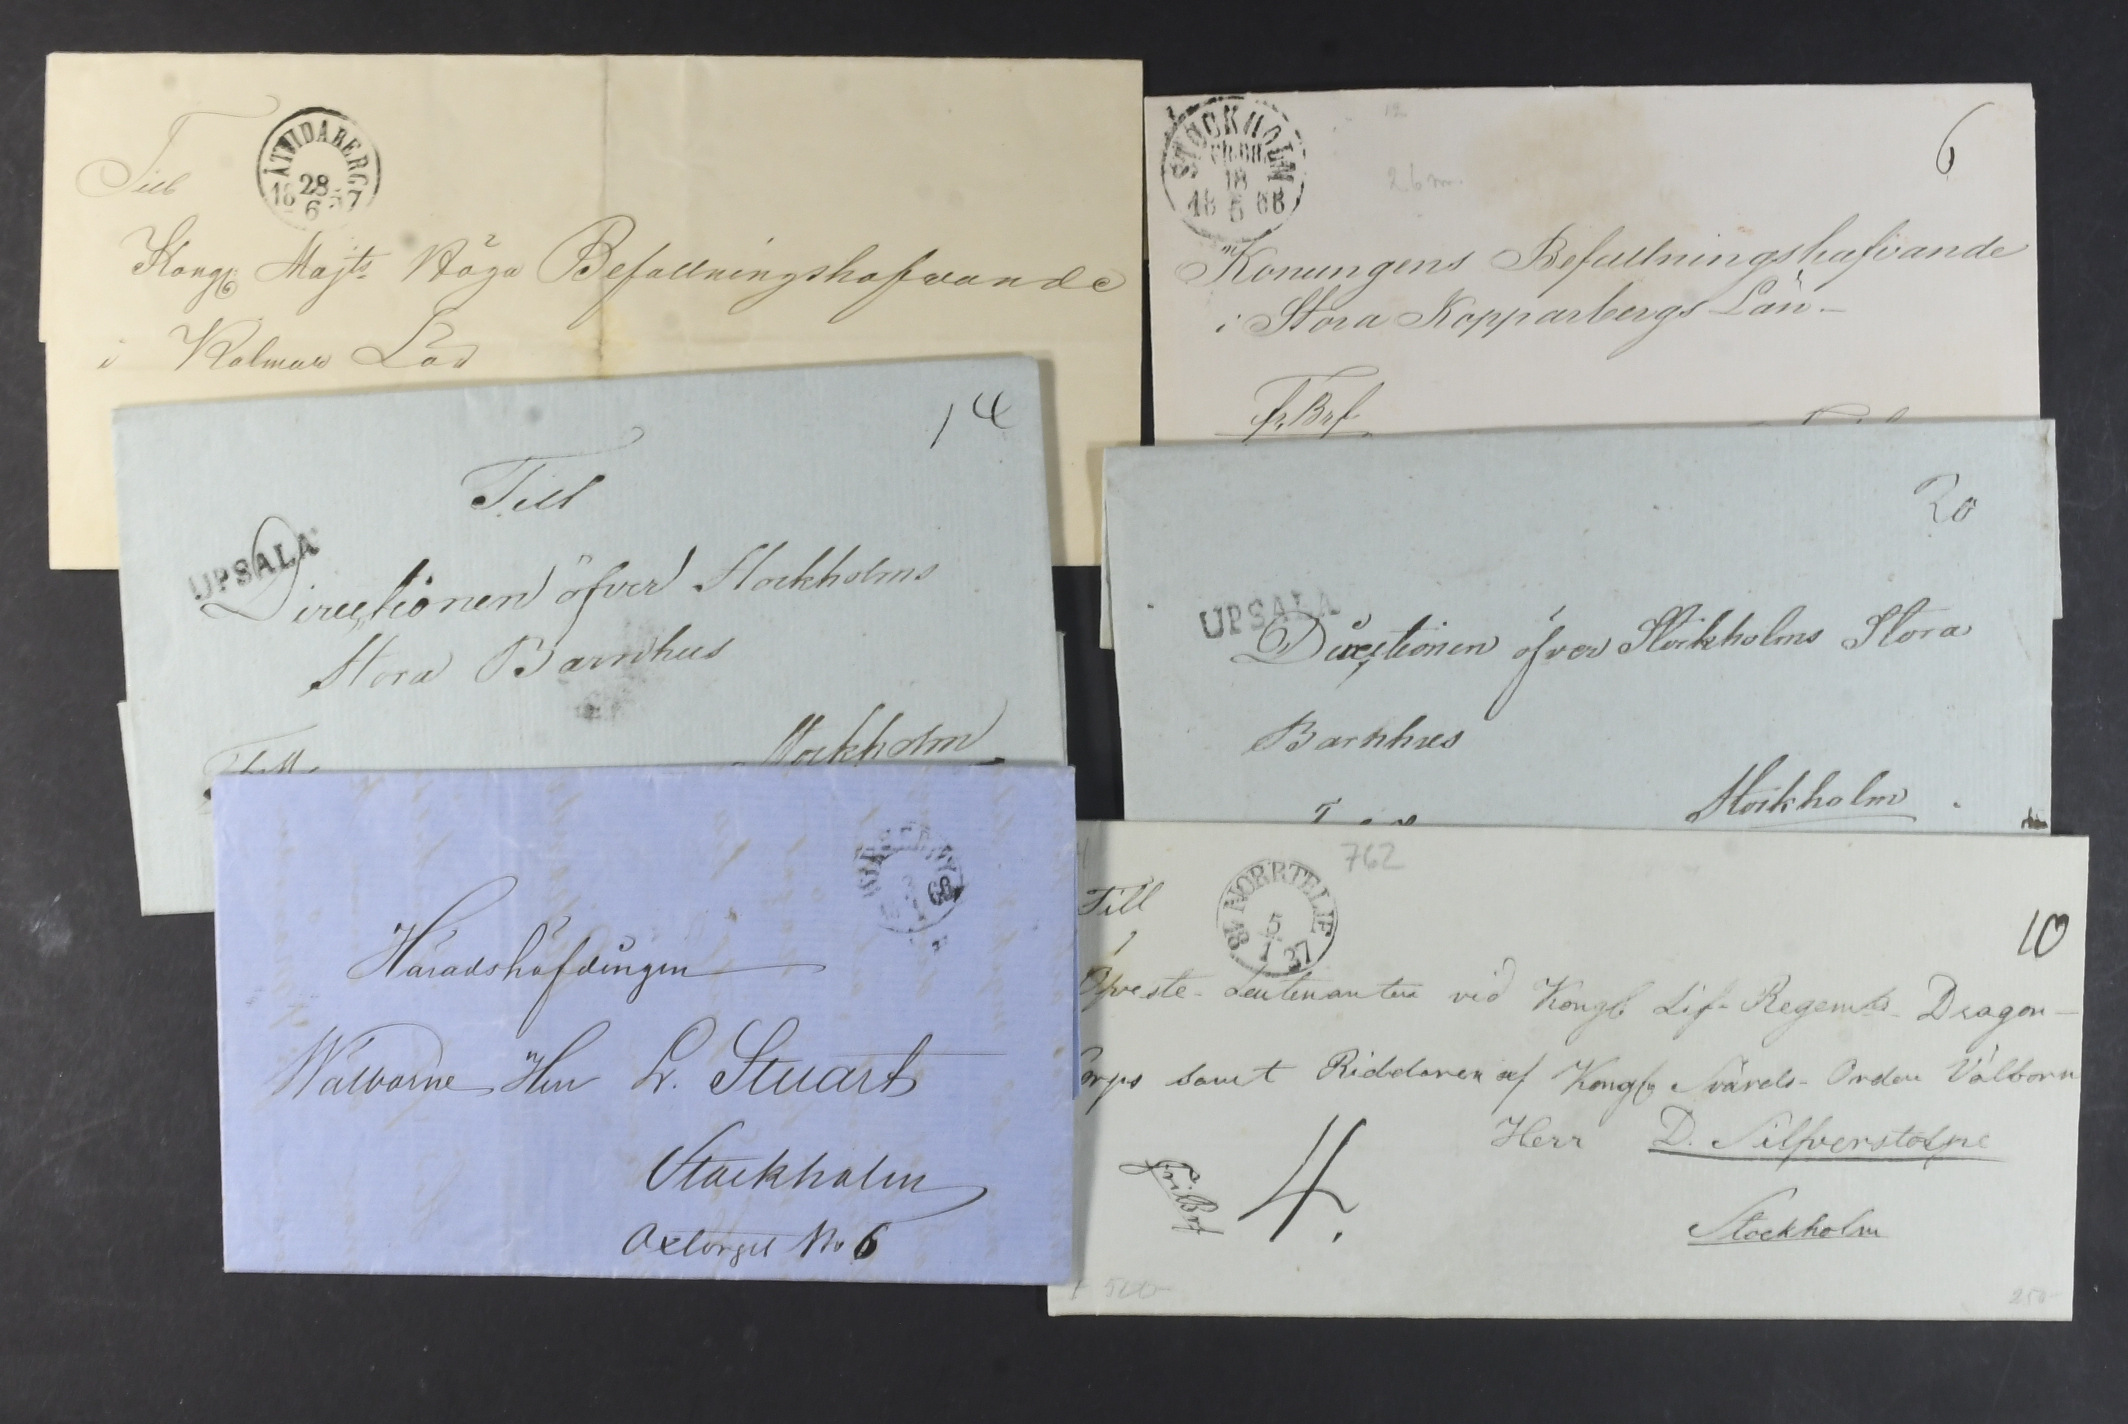 ÅTVIDABERG
28
18 6 57
Till
Kongl Majts Höga Befallningshafvande
i Kalmar Län
STOCKHOLM
18
18 5 66
6
Konungens Befallningshafvande
i Stora Kopparbergs Län
fr. Brf
14
Till
UPSALA
Directionen öfver Stockholms
Stora Barnhus
Stockholm
20
UPSALA
Directionen öfver Stockholms Stora
Barnhus
Stockholm
60
Häradshöfdingen
Wälborne Herr L. Stuart
Stockholm
Oxtorget No 6
762
NORRTELJE
5
18 1 37
10
Till
Öfverste-Leutenanten vid Kongl Lif-Regemts-Dragon-
Corps samt Riddaren af Kongl Svärds-Orden Välborn
Herr D. Silfverstolpe
Fri Brf
4.
Stockholm
500-
250-